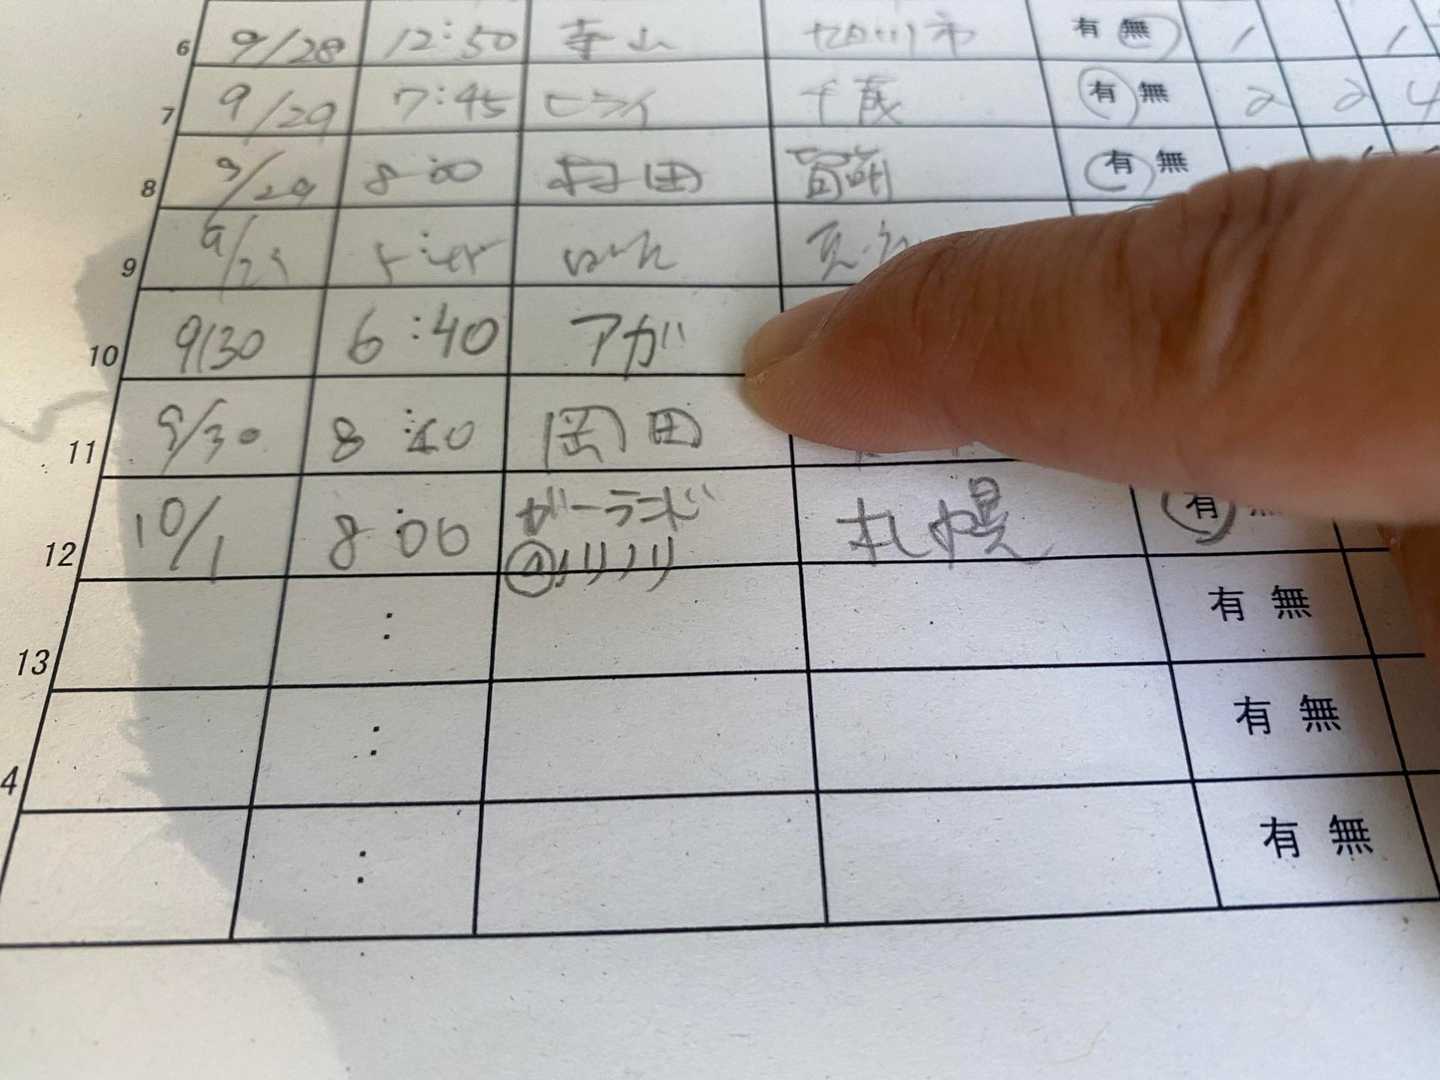 6 9/28 12:50 寺山 旭川市 有 無 1 1
7 9/29 7:45 ヒライ 千歳 有 無 2 2 4
8 9/29 8:00 村田 有 無
9
10 9/30 6:40 アガ
11 9/30 8:40 岡田
12 10/1 8:00 ガーランド 札幌 有 無
ノリノリ
13 : 有 無
4 : 有 無
: 有 無